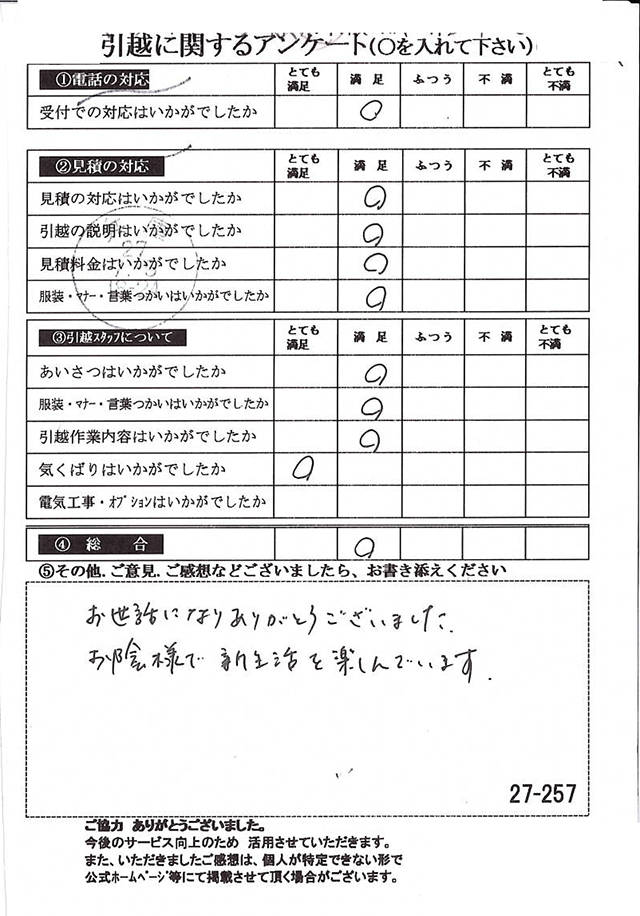 引越に関するアンケート(〇を入れて下さい)
①電話の対応 とても満足 満足 ふつう 不満 とても不満
受付での対応はいかがでしたか ○
②見積の対応 とても満足 満足 ふつう 不満 とても不満
見積の対応はいかがでしたか ○
引越の説明はいかがでしたか ○
見積料金はいかがでしたか ○
服装・マナー・言葉つかいはいかがでしたか ○
③引越スタッフについて とても満足 満足 ふつう 不満 とても不満
あいさつはいかがでしたか ○
服装・マナー・言葉つかいはいかがでしたか ○
引越作業内容はいかがでしたか ○
気くばりはいかがでしたか ○
電気工事・オプションはいかがでしたか
④ 総 合 ○
⑤その他.ご意見.ご感想などございましたら、お書き添えください
お世話になりありがとうございました.
お陰様で新生活を楽しんでいます.
27-257
ご協力 ありがとうございました。
今後のサービス向上のため 活用させていただきます。
また、いただきましたご感想は、個人が特定できない形で
公式ホームページ等にて掲載させて頂く場合がございます。